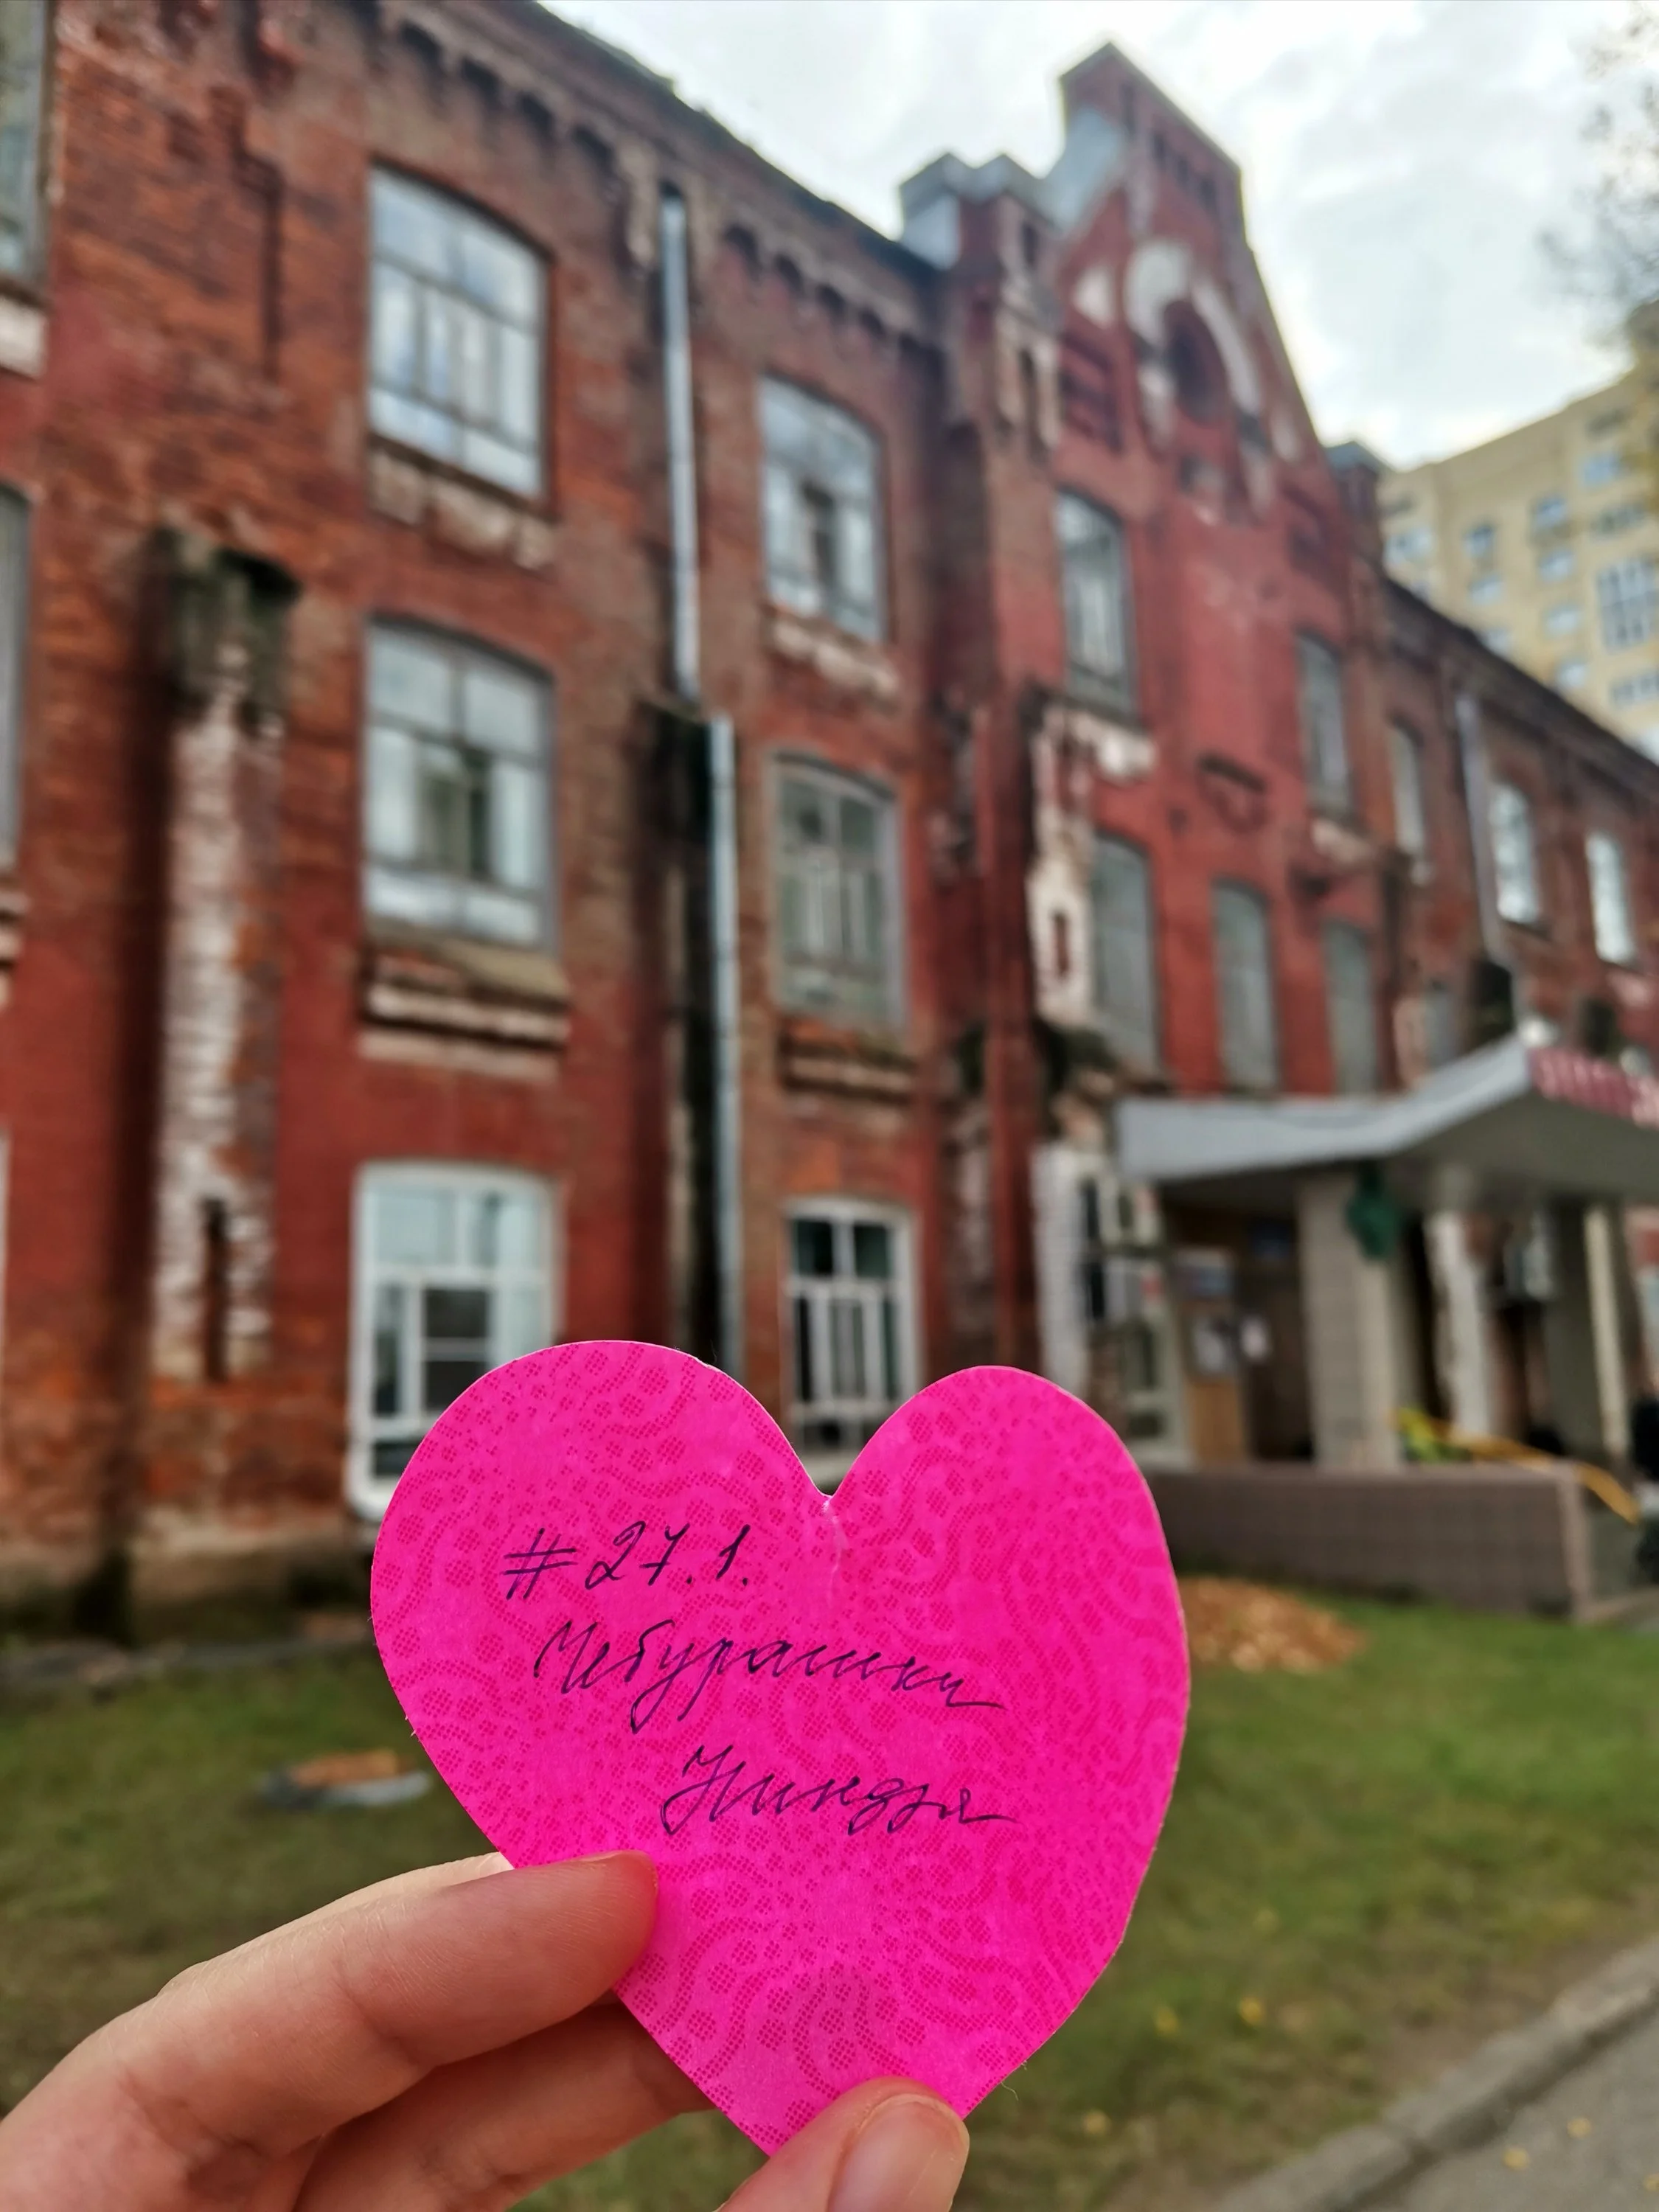 #27.1.
Чебурашки
Ниндзя